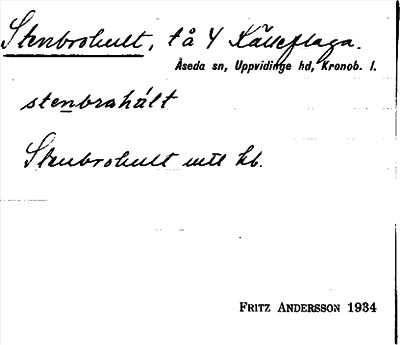 Stenbrohult, t å 4 Källeflaga.
Åseda sn, Uppvidinge hd, Kronob. l.
stenbrohúlt
Stenbrohult mtl kb.
FRITZ ANDERSSON 1934